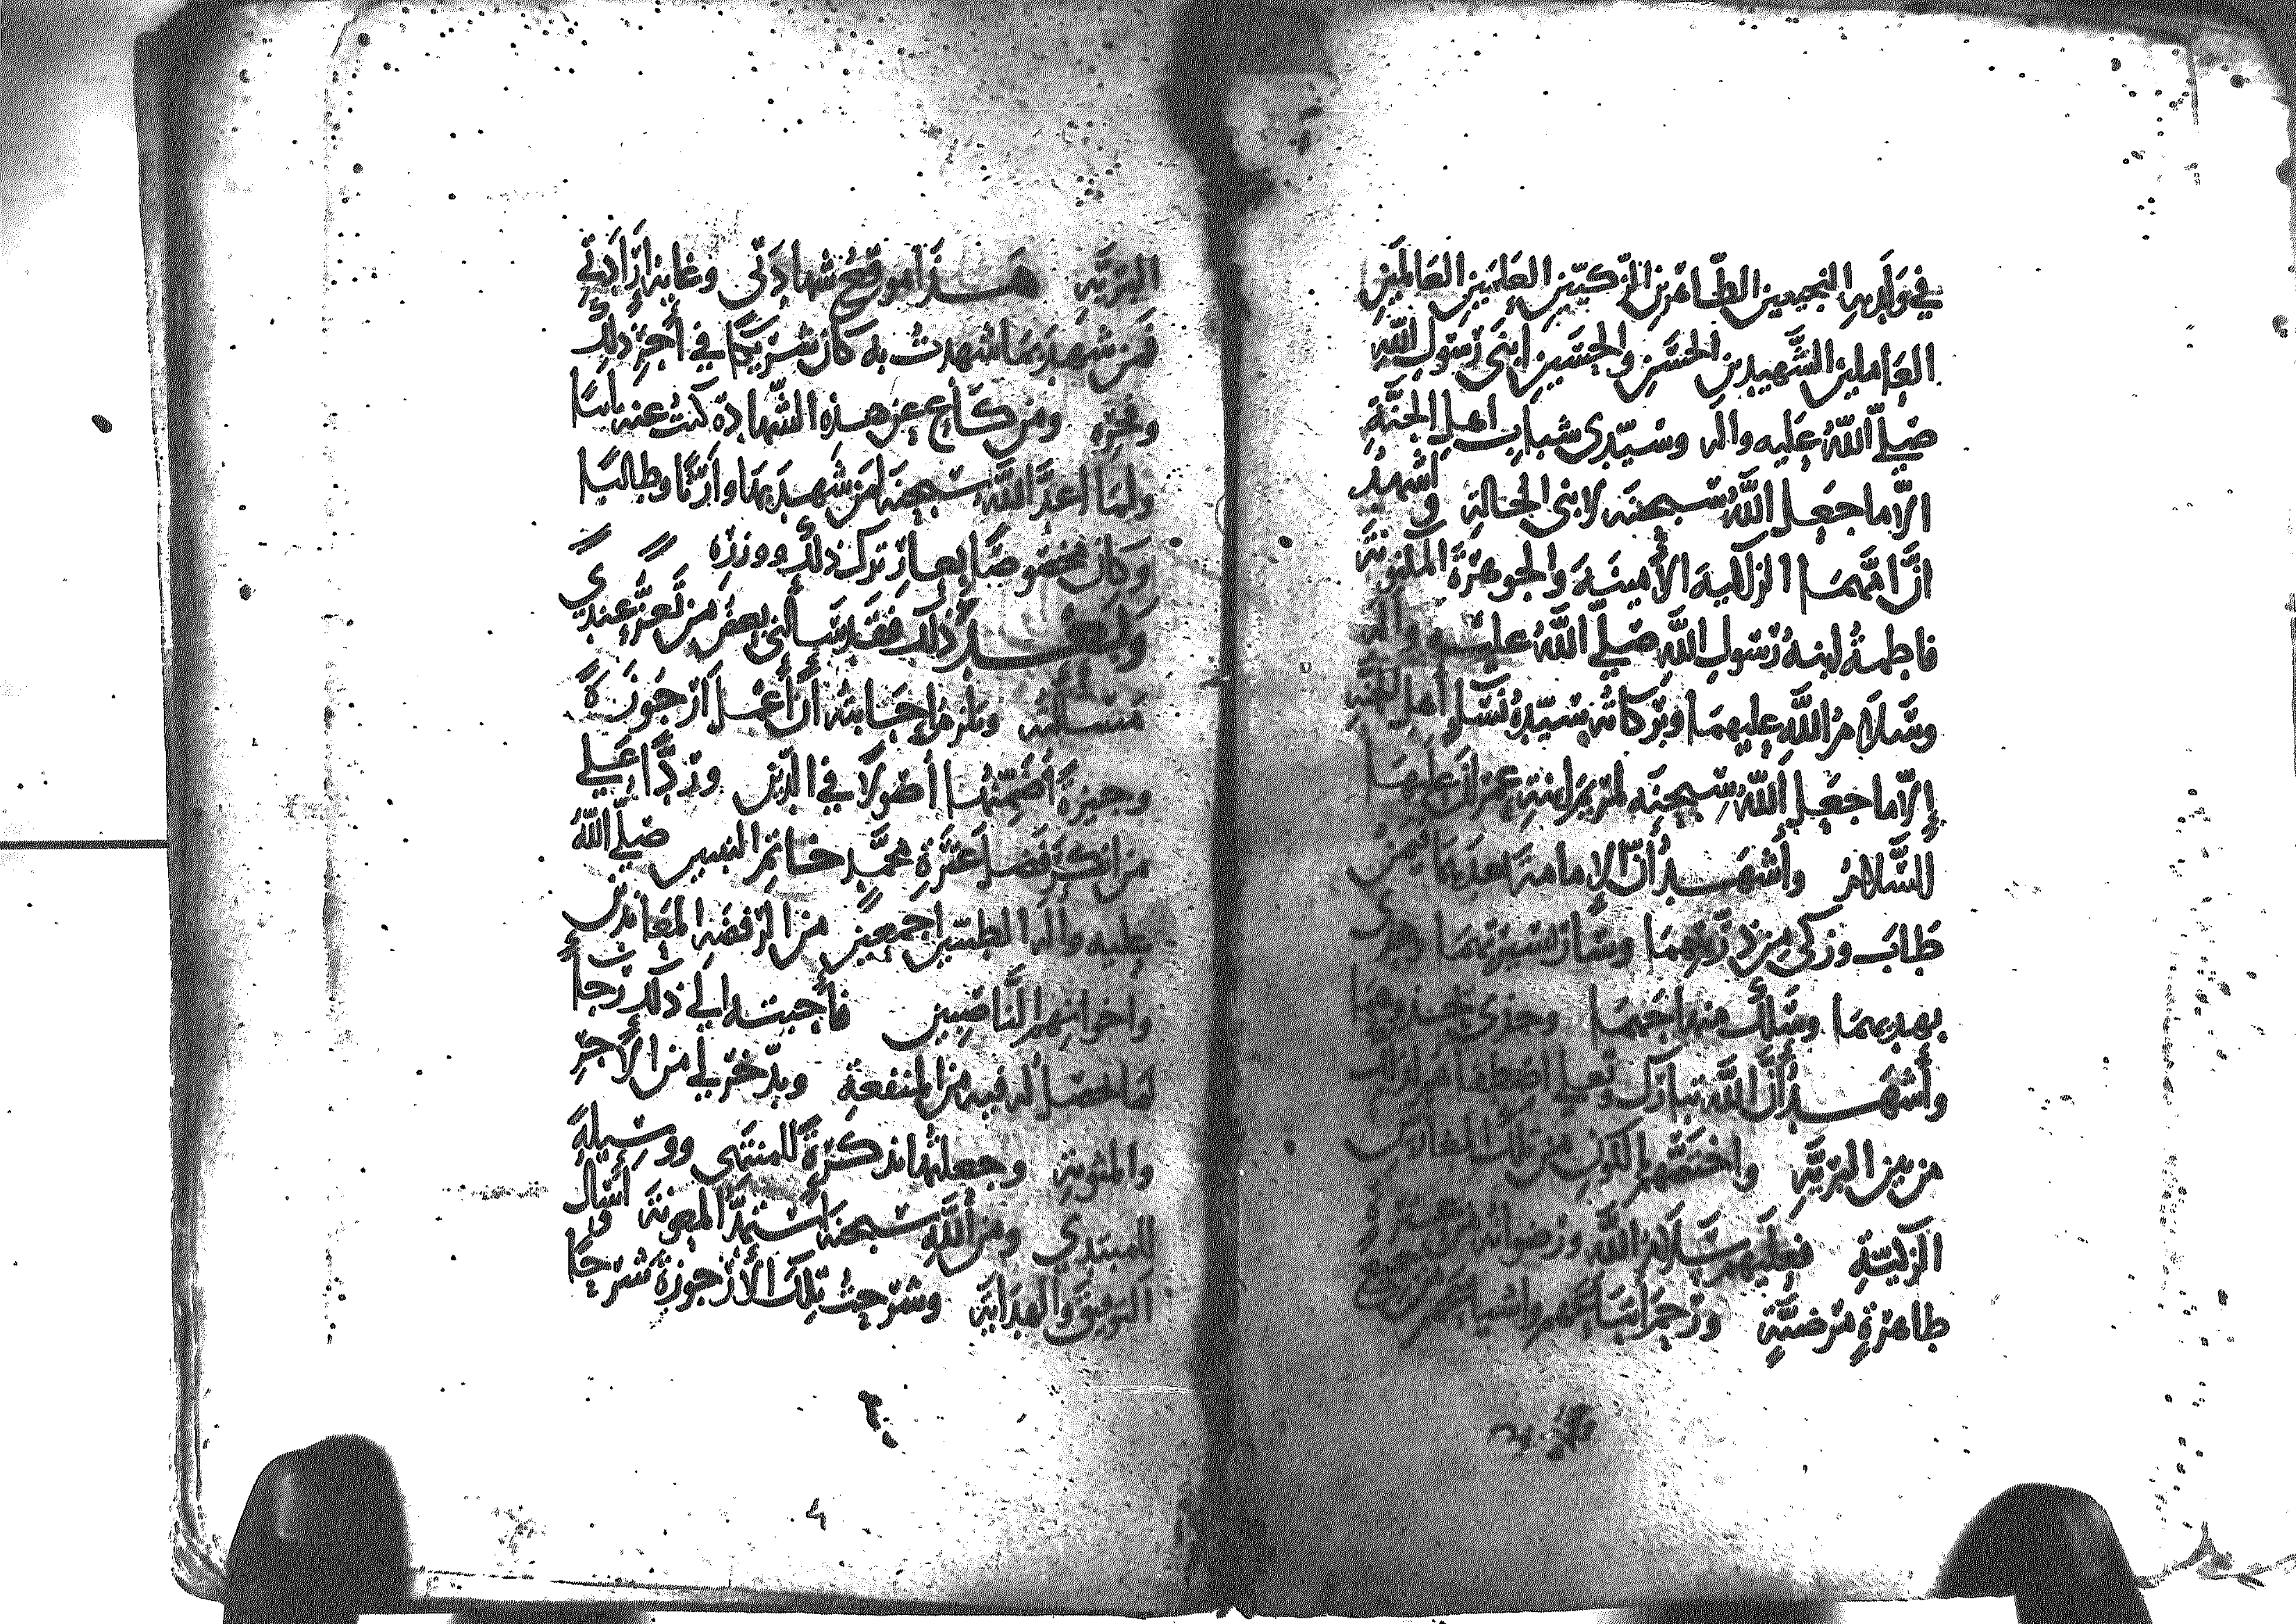 في ولديه النجيبين الطاهرين الزكيين العلمين العالمين
العاملين الشهيدين الحسن والحسين ابني رسول الله
صلى الله عليه واله وسيدي شباب اهل الجنة
الا ما جعل الله سبحنه لابني الخالة واشهد
ان امهما الزكية الأمينة والجوهرة المكنونة
فاطمة ابنة رسول الله صلى الله عليه واله
وسلام الله عليهما وبركاته سيدة نساء اهل الجنة
إلا ما جعل الله سبحنه لمريم ابنة عمران عليها
السلام وأشهد أن الإمامة بعدهما فيمن
طاب وزكى من ذريتهما وسار بسيرتهما وهدى
بهديهما وسلك منهاجهما وحذى حذوهما
وأشهد أن الله تبارك وتعلى اصطفاهم لذلك
من بين البرية واختصهم بالكون من تلك المغارس
الزكية فعليهم سلام الله ورضوانه من عترة
طاهرة مرضية ورحم أتباعهم واشياعهم من جميع
البرية هذا موقع شهادتي وغاية إرادتي
فمن شهد بما شهدت به كان شريكا في أجر ذلك
وذخره ومن كاع عن هذه الشهادة كنت عنه نائبا
ولما اعد الله سبحنه لمن شهد بها وارثا وطالبا
وكان مخصوصا بعار ترك ذلك ووزره
وبعد ذلك فقد سألني بعض من تعز عندي
مسألته وتلزم إجابته أن أعمل أرجوزة
وجيزة أضمنها أصولا في الدين وردا على
من انكر فضل عترة محمد خاتم النبيين صلى الله
عليه واله الطيبين اجمعين من الرفضة المعاندين
واخوانهم الناصبين فأجبته إلى ذلك رجاء
لما تحصل له فيه من المنفعة ويدخر لي من الأجر
والمثوبة وجعلتها تذكرة للمنتهي ووسيلة
للمبتدي ومن الله سبحنه استمد المعونة وأسال
التوفيق والهداية وشرحت تلك الأرجوزة شرحا